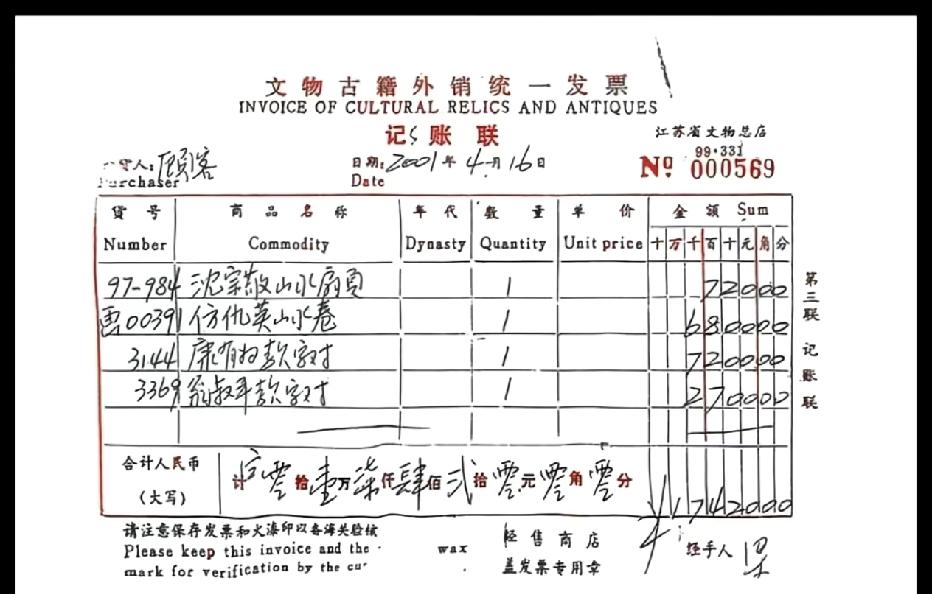 文物古籍外销统一发票
INVOICE OF CULTURAL RELICS AND ANTIQUES
记账联
江苏省文物总店
99·331
货人：顾客 日期：2001年4月16日 Nº 000569
Purchaser Date
货号 商品名称 年代 数量 单价 金额 Sum
Number Commodity Dynasty Quantity Unit price 十万千百十元角分
97-984 沈宗敬山水扇页 1 72000
曹00391 仿仇英山水卷 1 680000
3144 康有为款字对 1 720000
3369 翁叔平款字对 1 270000
合计人民币
（大写）
计 零拾壹万柒仟肆佰贰拾零元零角零分 ¥1742000
第三联 记账联
请注意保存发票和火漆印以备海关验核
Please keep this invoice and the wax
mark for verification by the cu
经售商店
盖发票专用章
经手人